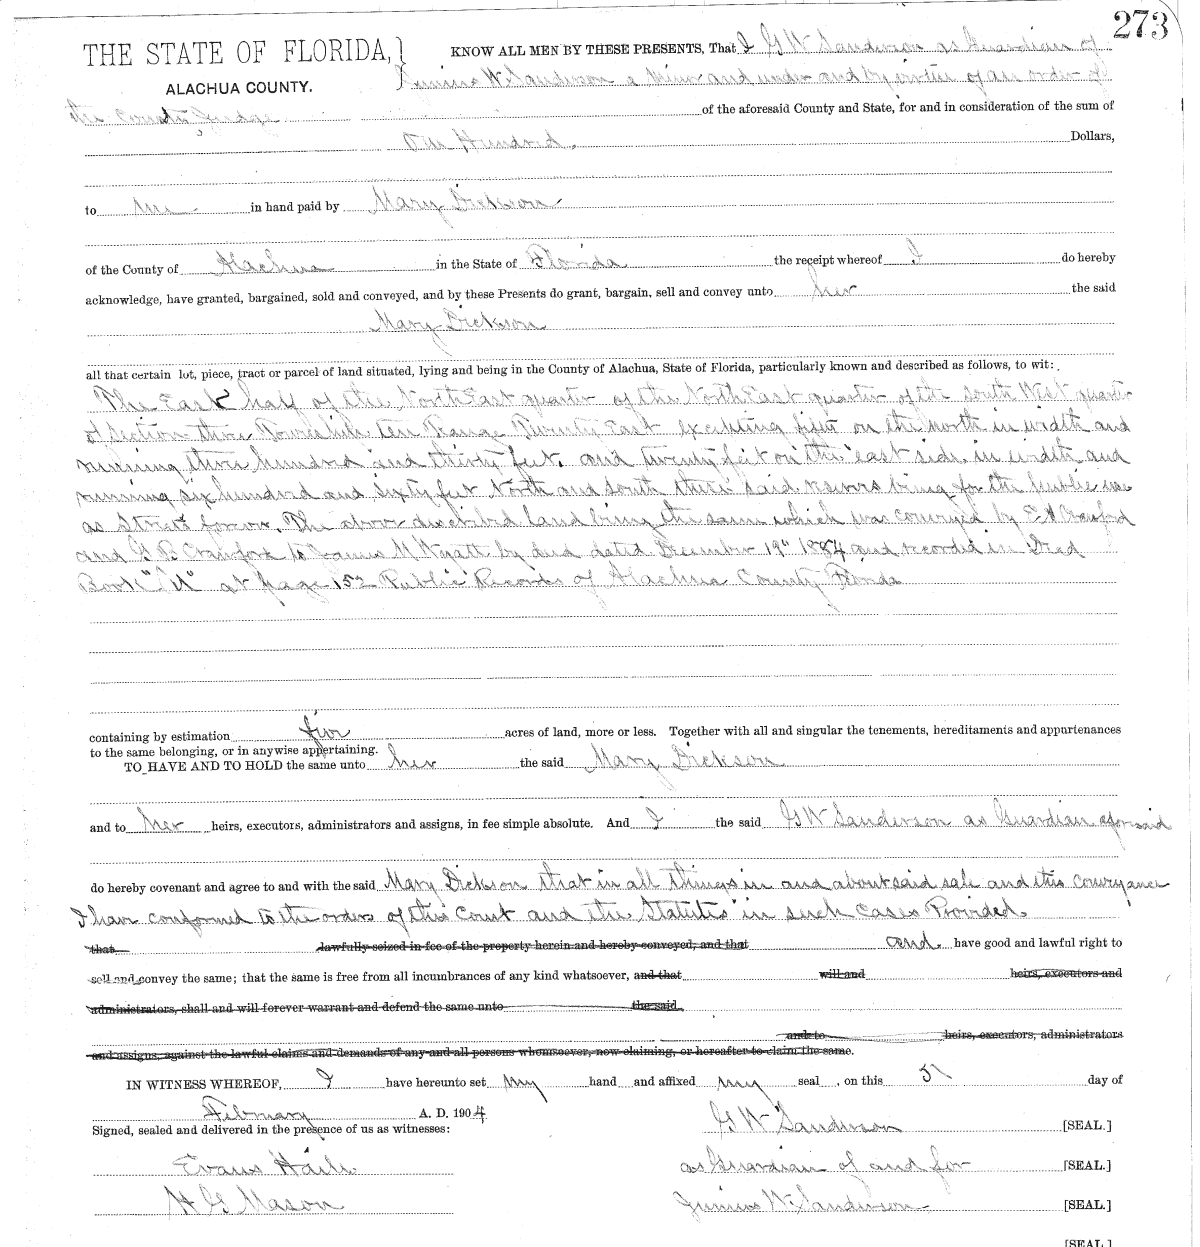 273
THE STATE OF FLORIDA, } KNOW ALL MEN BY THESE PRESENTS, That I G W Sanderson as Guardian of
ALACHUA COUNTY. Junius W Sanderson a Minor and under and by virtue of an order of
the County Judge of the aforesaid County and State, for and in consideration of the sum of
One Hundred Dollars,
to me in hand paid by Mary Dickson
of the County of Alachua in the State of Florida the receipt whereof I do hereby
acknowledge, have granted, bargained, sold and conveyed, and by these Presents do grant, bargain, sell and convey unto her the said
Mary Dickson
all that certain lot, piece, tract or parcel of land situated, lying and being in the County of Alachua, State of Florida, particularly known and described as follows, to wit:
The East half of the North East quarter of the North East quarter of the south West quarter
of Section three Township ten Range Twenty East excepting fifteen on the north in width and
running three hundred and thirty feet, and twenty feet on the east side in width and
running six hundred and sixty feet North and south there said reserves being for the public use
as Street forever. The above described land being the same which was conveyed by E A Crawford
and G B Crawford to James M Wyatt by deed dated December 19" 1884 and recorded in Deed
Book at page 152 Public Records of Alachua County Florida
containing by estimation five acres of land, more or less. Together with all and singular the tenements, hereditaments and appurtenances
to the same belonging, or in anywise appertaining.
TO HAVE AND TO HOLD the same unto her the said Mary Dickson
and to her heirs, executors, administrators and assigns, in fee simple absolute. And I the said G W Sanderson as Guardian aforesaid
do hereby covenant and agree to and with the said Mary Dickson that in all things in and about said sale and this conveyance
I have conformed to the orders of this Court and the Statutes in such cases Provided.
that lawfully seized in fee of the property herein and hereby conveyed; and that and have good and lawful right to
sell and convey the same; that the same is free from all incumbrances of any kind whatsoever, and that will and heirs, executors and
administrators, shall and will forever warrant and defend the same unto the said
and to heirs, executors, administrators
and assigns, against the lawful claims and demands of any and all persons whomsoever, now claiming, or hereafter to claim the same.
IN WITNESS WHEREOF, I have hereunto set my hand and affixed my seal , on this 5 day of
February A. D. 1904
Signed, sealed and delivered in the presence of us as witnesses: G W Sanderson [SEAL.]
Evans Haile as Guardian of and for [SEAL.]
H G Mason Junius W Sanderson [SEAL.]
[SEAL.]